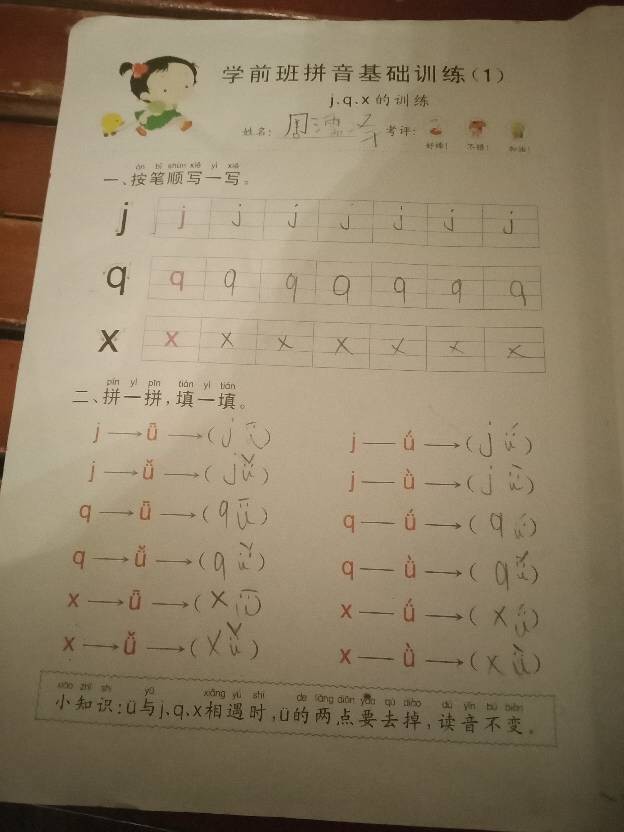 学前班拼音基础训练（1）
j.q.x的训练
姓名：周 考评：
好棒！ 不错！ 加油！
àn bǐ shùn xiě yì xiě
一、按笔顺写一写。
j j j j j j j j
q q q q q q q q
x x x x x x x x
pīn yì pīn tián yì tián
二、拼一拼，填一填。
j → ǖ → （jǖ） j — ǘ → （jǘ）
j → ǚ → （jǚ） j — ǜ → （jǖ）
q → ǖ → （qǖ） q — ǘ → （qǘ）
q → ǚ → （qǚ） q — ǜ → （qǜ）
x → ǖ → （xǖ） x — ǘ → （xǘ）
x → ǚ → （xǚ） x — ǜ → （xǜ）
xiǎo zhī shi yǔ xiāng yù shí de liǎng diǎn yào qù diào dú yīn bú biàn
小知识：ü与j、q、x相遇时，ü的两点要去掉，读音不变。